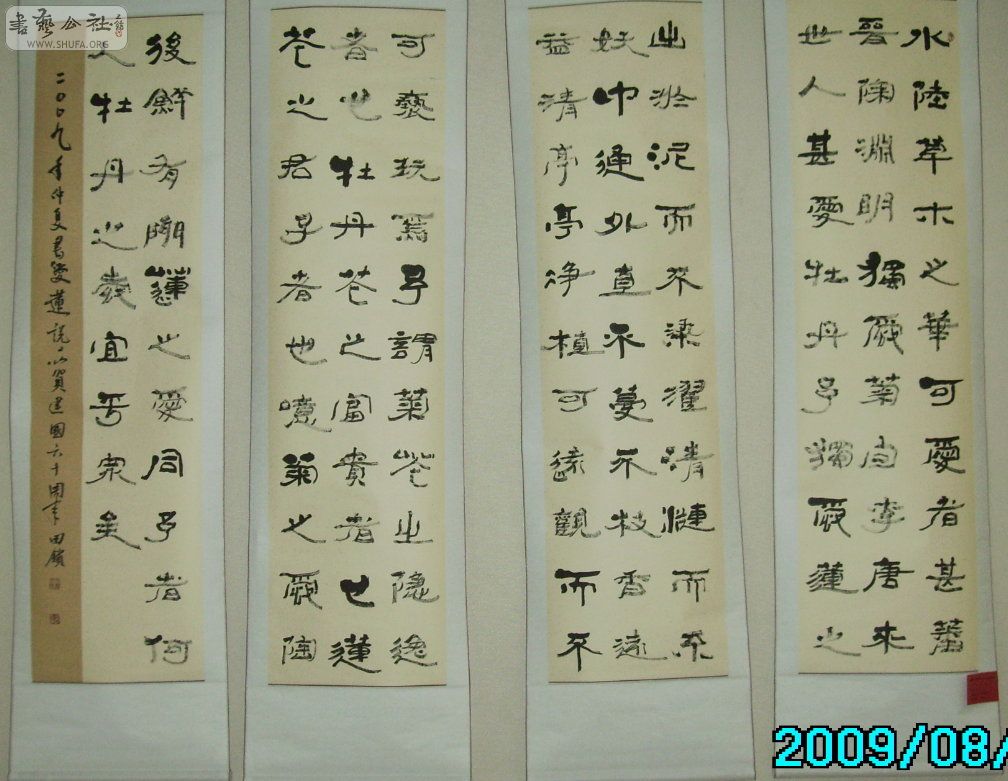 書藝公社
WWW.SHUFA.ORG
水陸草木之華可愛者甚蕃
晉陶淵明獨愛菊自李唐來
世人甚愛牡丹予獨愛蓮之
出淤泥而不染濯清漣而不
妖中通外直不蔓不枝香遠
益清亭亭淨植可遠觀而不
可褻玩焉予謂菊花之隱逸
者也牡丹花之富貴者也蓮
花之君子者也噫菊之愛陶
後鮮有聞蓮之愛同予者何
人牡丹之愛宜乎衆矣
二〇〇九年仲夏書愛蓮說以賀建國六十周年田鎖
2009/08/